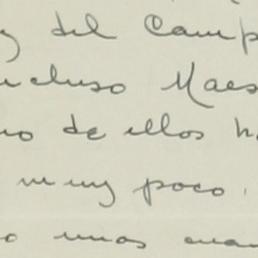 y del Camp
incluso Maes
no de ellos h
muy poco.
o unos cuan